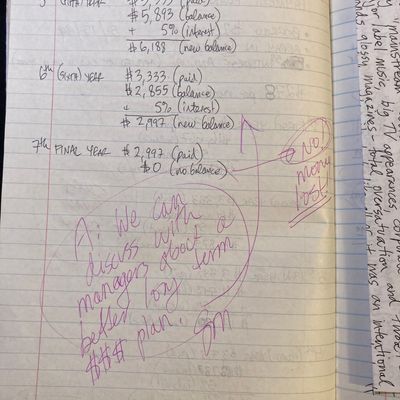 $5,893 (balance)
+ 5% (interest)
$6,188 (new balance)
6th (SIXTH) YEAR $3,333 (paid)
$2,855 (balance)
+ 5% (interest)
$2,997 (new balance)
7th FINAL YEAR $2,997 (paid)
$0 (no balance)
No
money
lost
A: We can
discuss with
managers about a
better long term
$$$ plan.
"mainstream
label music, big TV appearances, corporate
glossy magazines - total oversaturation and
it was an intentional